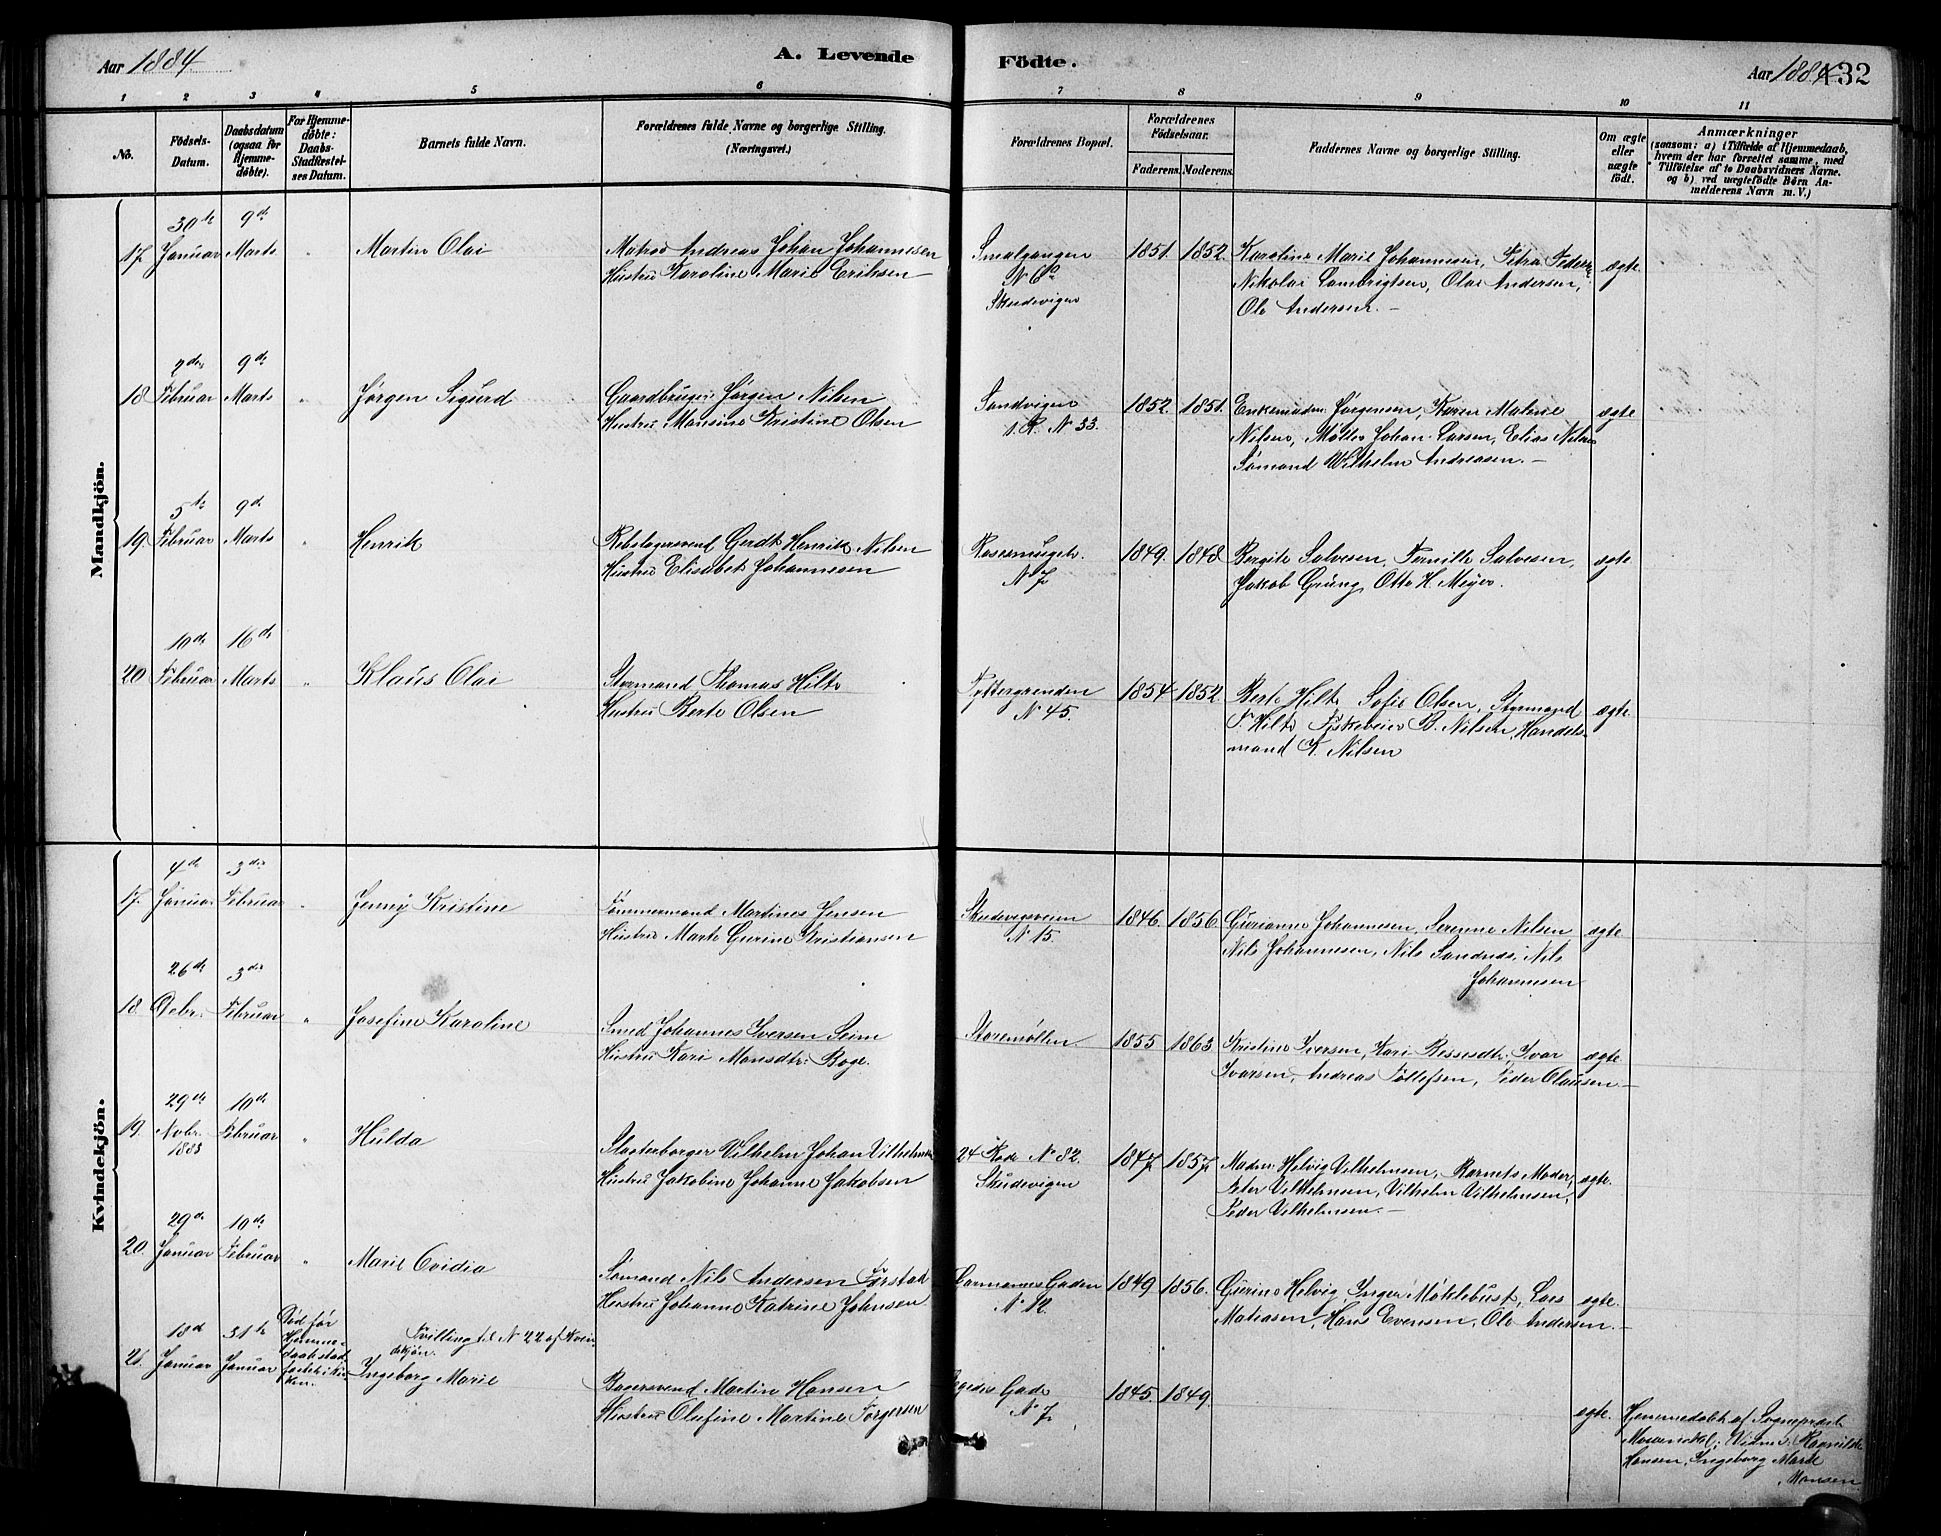 Aar 1884
A. Levende
Födte.
Aar 1884
132
1
2
3
4
5
6
7
8
9
10
11
No.
Födsels-Datum.
Daabsdatum (ogsaa for Hjemme-døbte).
For Hjemme-døbte: Daabs-Stadfæstel-ses Datum.
Barnets fulde Navn.
Forældrenes fulde Navne og borgerlige Stilling.
(Næringsvei.)
Forældrenes Bopæl.
Forældrenes Födselsaar.
Faderens.
Moderens.
Faddernes Navne og borgerlige Stilling.
Om ægte eller uægte födt.
Anmærkninger
(saasom: a) i Tilfælde af Hjemmedaab, hvem der har forrettet samme, med Tilföielse af to Daabsvidners Navne, og b) ved uægtefödte Börn An-melderens Navn m. V.)
Mandkjön.
30te 9de
17. Januar Marts " Martin Olai Matros Andreas Johan Johannesen
Hustru Karoline Marie Eriksen
Smalgangen
N 6a
Skudevigen
1851. 1852.
Karoline Marie Johannesen, Petra Pedersen
Nikolai Lambrigtsen, Olai Andersen,
Ole Andersen. –
ægte.
2den 9de
18 Februar Marts " Jørgen Sigurd Gaardbruger Jørgen Nilsen
Hustru Monsine Kristine Olsen
Sandvigen
1. R. N 33.
1852. 1851.
Enkemadm. Jørgensen, Karen Malene
Nilsen, Møller Johan Larsen, Elias Nilsen
Sømand Wilhelm Andreasen. –
ægte
5te 9de
19. Februar Marts " Henrik Rebslagersvend Gerdt Henrik Nilsen
Hustru Elisabet Johannesen
N 7
1849. 1848
Bergite Salvesen, Pernille Salvesen,
Jakob Grung, Otto H. Meyer.
ægte
10de 16de
20 Februar Marts " Klaus Olai Styrmand Thomas Hilt
Hustru Berte Olsen
N 45.
1854 1852.
Berte Hilt, Sofie Olsen, Styrmand
T. Hilt, Fiskeveier B. Nilsen, Handels-
mand K. Nilsen
ægte.
Kvindekjön.
4de 3die
17. Januar Februar " Jenny Kristine Tømmermand Martines Jensen
Hustru Marte Gurine Kristiansen
Skudevigsveien
N 15.
1846. 1856
Gurianne Johannesen, Serenne Nilsen
Nils Johannesen, Nils Sandnes, Nils
Johannesen
ægte
26de 3die
18. Debr. Februar " Josefine Karoline Smed Johannes Iversen Seim
Hustru Kari Monsdtr. Boge.
Storemøllen
1855 1863
Kristine Iversen, Kari Bessesdtr, Ivar
Ivarsen, Andreas Tollefsen, Peder Clausen –
ægte
29de 10de
19. Novbr. 1883 Februar " Hulda Slagterborger Vilhelm Johan Vilhelmsen
Hustru Jakobine Johanne Jakobsen
24 Rode N 82.
Skudevigen
1847 1857
Madm. Helvig Vilhelmsen, Barnets Moder,
Peter Vilhelmsen, Vilhelm Vilhelmsen,
Peder Vilhelmsen. –
ægte.
29de 10de
20. Januar Februar " Marie Ovidia Sømand Nils Andersen Førstad
Hustru Johanne Katrine Johnsen
Gaden
N 12.
1849 1856.
Gurine Helvig, Inger Møklebust, Lars
Matiasen, Hans Evensen, Ole Andersen. –
ægte.
18de 31te
21. Januar Januar
Død før Hjemme-daab stad-fæstet i Kir-ken.
Tvilling til N 22 af Kvin-
dekjøn.
Ingeborg Marie
Bagersvend Martin Hansen
Hustru Olufine Martine Torgersen
Gade
N 7
1845. 1849.
ægte.
Hjemmedøbt af Sogneprest
Vidner: Ragnilde
Hansen, Ingeborg Marie
Monsen